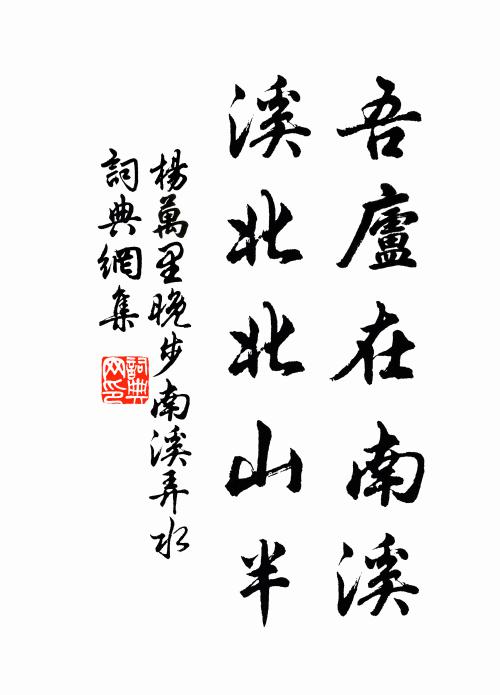 吾廬在南溪
溪北北山半
楊萬里晚步南溪弄水
詞典網集
詞典
网印